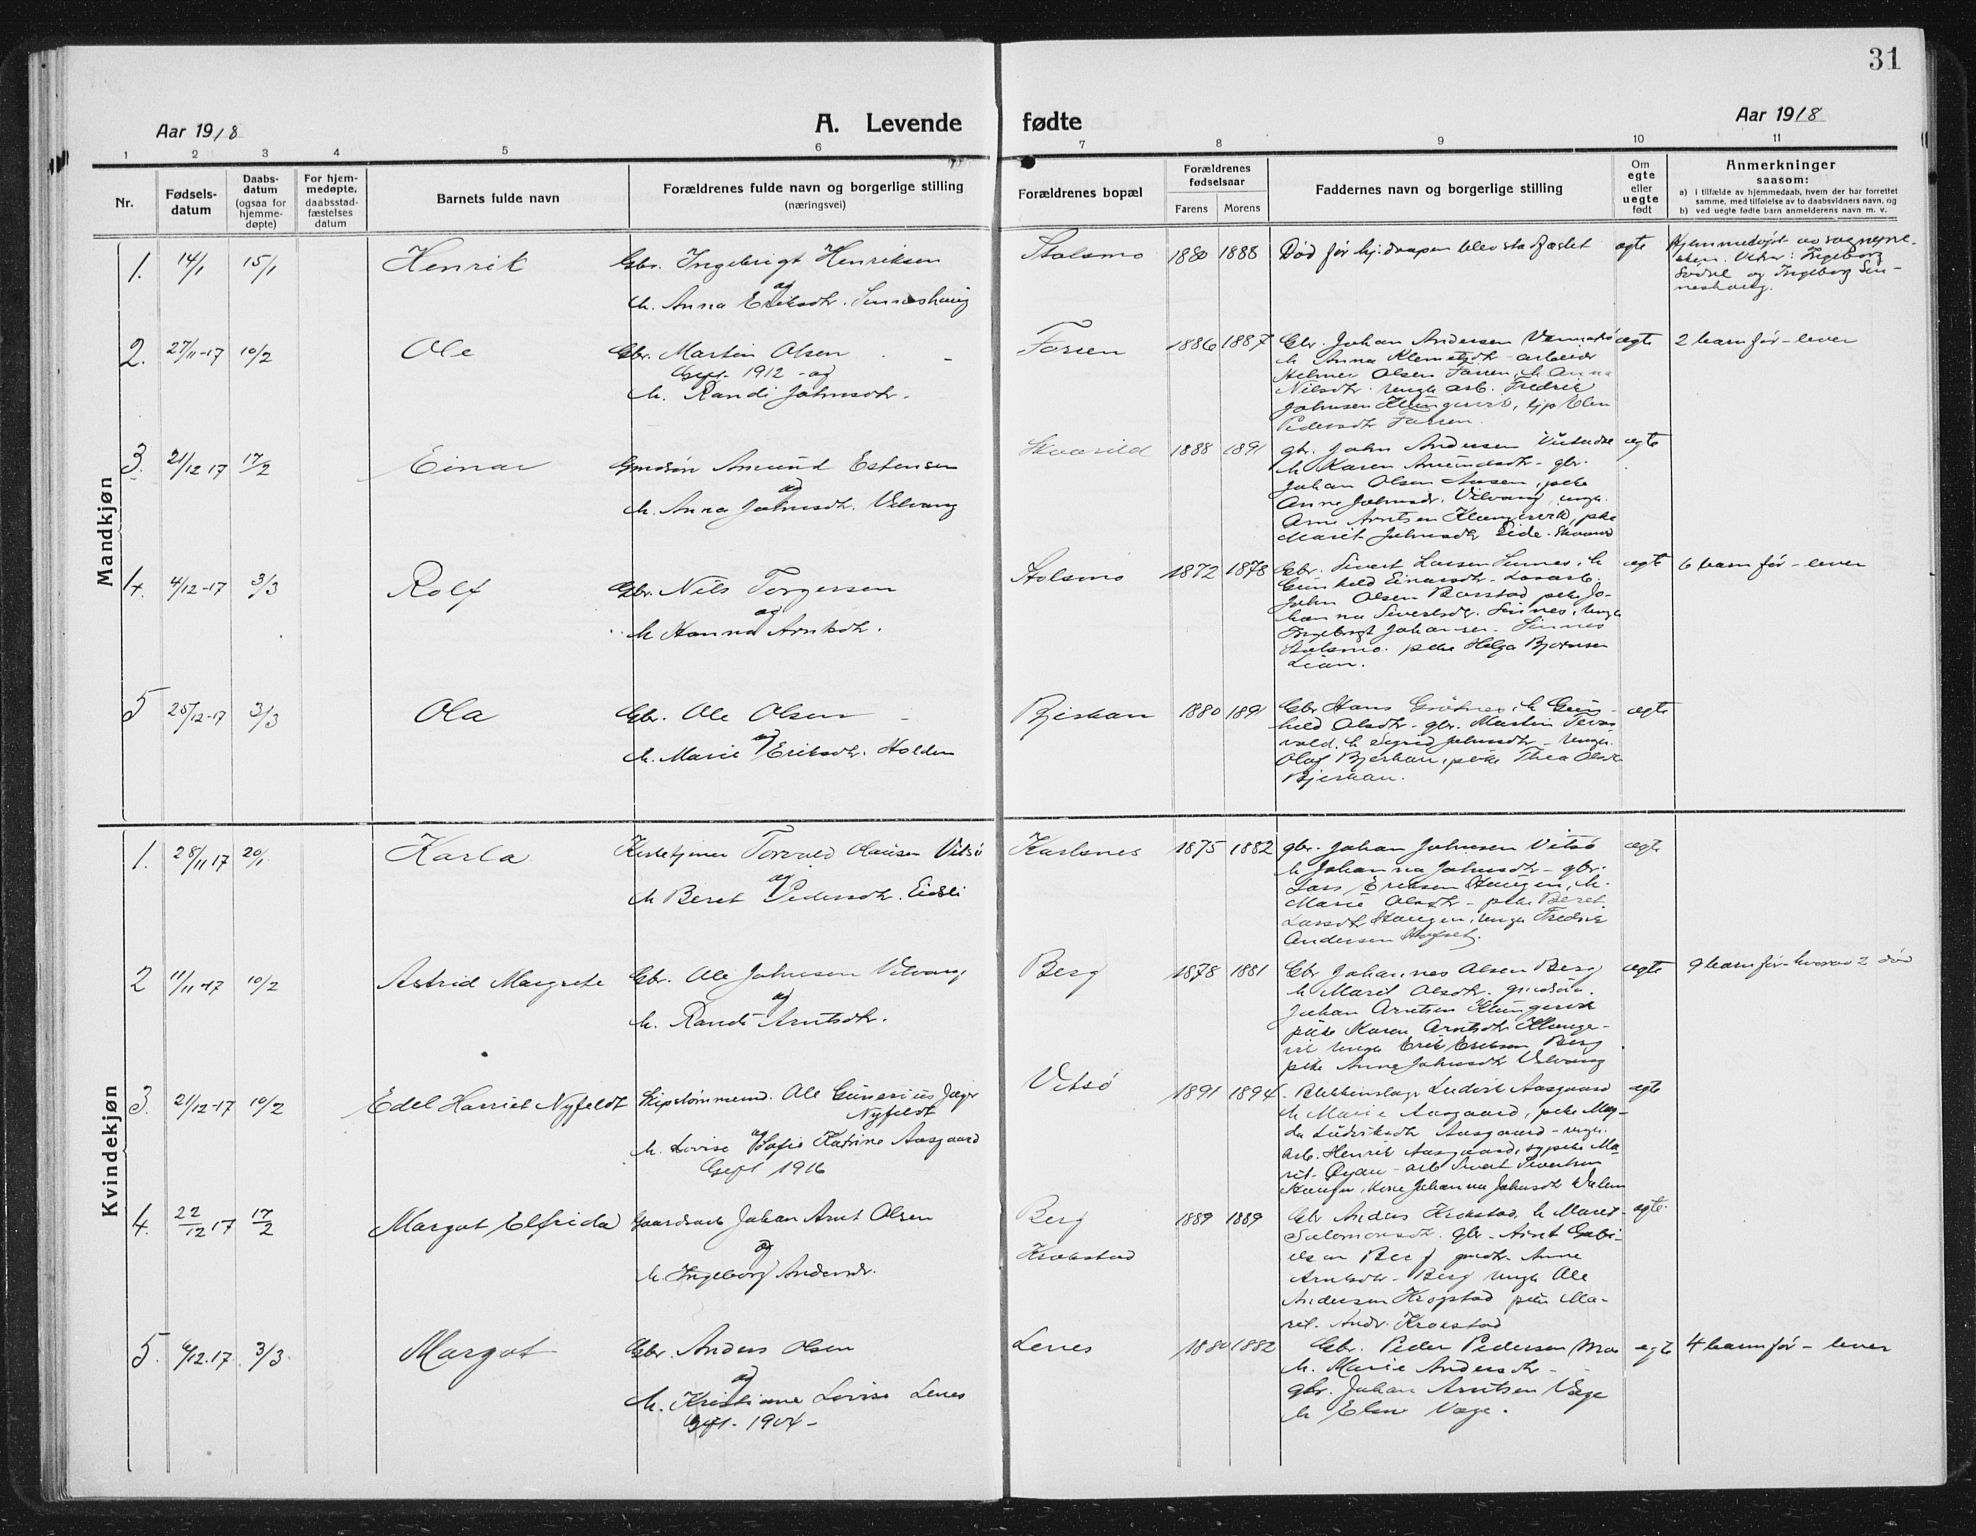 31
Aar 1918
A. Levende fødte
Aar 1918
1 2 3 4 5 6 7 8 9 10 11
Nr.
Fødsels-
datum
Daabs-
datum
(ogsaa for
hjemme-
døpte)
For hjem-
medøpte,
daabsstad-
fæstelses
datum
Barnets fulde navn
Forældrenes fulde navn og borgerlige stilling
(næringsvei)
Forældrenes bopæl
Forældrenes
fødselsaar
Farens Morens
Faddernes navn og borgerlige stilling
Om
egte
eller
uegte
født
Anmerkninger
saasom:
a) i tilfælde av hjemmedaab, hvem der har forrettet
samme, med tilføielse av to daabsvidners navn, og
b) ved uegte fødte barn anmelderens navn m. v.
Mandkjøn
1. 14/1 15/1 Henrik
Gbr. Ingebrigt Henriksen
og
h. Anna Eriksdtr. Sinneshaug
Stolsmo 1880 1888
Død før hj.daapen blev stadfæstet
egte
Hjemmedøpt av
Ingeborg
og Ingeborg Sin-
neshaug.
2. 27/11-17 10/2 Ole
Gbr. Martin Olsen
Gift 1912 - og
h. Randi Johnsdtr.
Forren 1886 1887
Gbr. Johan Andersen
h. Anna Klemetsdtr - arbeider
Helmer Olsen Forren, h. Anna
Nilsdtr. Ungk. arb. Fredrik
Johnsen Klungervik, Elen
Pedersdtr Forren.
egte
2 barn før - lever
3. 21/12 17 17/2 Einar
Gmdsøn Amund Estensen
og
h. Anna Johnsdtr. Vilvang
1888 1891
gbr. John Andersen
h. Karen Amundsdtr - gbr.
Johan Olsen Aasen, pike
Anne Johnsdr. Vilvang, ungk.
Arne Arntsen Klungervik, pke
Marit Johnsdtr Eide
egte
4. 4/12-17 3/3 Rolf
Gbr. Nils Torgersen
og
h. Hanna Arntsdtr.
Stolsmo 1872 1878
Gbr. Sivert Larsen Sinnes, h.
Gunhild Einarsdtr
John Olsen pike Jo-
hanna Sivertsdr. Sinnes, Ungk
Ingebrigt Johansen. Sinnes
Stolsmo. pike Helga Bjørnsen
Lian.
egte
6 barn før - lever
5 28/12-17 3/3 Ola
Gbr. Ole Olsen
og
h. Marie Eriksdtr. Holden
Bjerkan 1880 1891
Gbr Hans h. Gun-
hild Olsdtr - gbr. Martin
h. Sigrid Johnsdtr - Ungk.
Olaf Bjerkan, pike Thea Olsdtr
Bjerkan.
egte
Kvindekjøn
1. 28/11 17 20/1 Karla
Kirketjener Torvald Olausen Vitsø
og
h Beret Pedersdtr. Eidsli
Karlsnes 1875 1882
gbr. Johan Johnsen Vitsø
h Johanna Johnsdtr - gbr.
Lars Eriksen Haugen, h.
Marie Olsdtr - pike Beret
Larsdt Haugen, ungk Fredrik
Andersen
egte
2 11/11-17 10/2 Astrid Margrete
Gbr. Ole Johnsen Vilvang
og
h. Randi Arntsdtr.
Berg 1878 1881
Gbr Johannes Olsen Berg
h Marit Olsdtr. gmdsøn
Johan Arntsen Klungervik
pike Karen Arntsdtr Klunger-
vik Ungk Erik Eriksen Berg
pike Anne Johnsdtr Vilvang
egte
9 barn før - hvorav 2 død
3. 21/12-17 10/2 Edel Harriet Nyfeldt
Skipstømmermd. Ole Gunerius Jæger
Nyfeldt
og
h. Lovise Sofie Katrine Aasgaard
Gift 1916
Vitsø 1891 1894
Blikkenslager Ludvik Aasgaard
h Marie Aasgaard, pike Mag-
da Ludviksdtr Aasgaard - ungk.
arb. Henrik Aasgaard, sypike Ma-
rit Øydn - arb Sivert Sivertsen
Haugen, Kone Johanna Johnsdtr
egte
4. 22/12 17 17/2 Margot Elfrida
Gaardsarb Johan Arnt Olsen
og
h. Ingeborg Andersdr.
Berg
Krokstad
1889 1889
Gbr Anders Krokstad, h Marit
Salomonsdt. gbr. Arnt Gabri-
elsen Berg gmdtr. Anne
Arntsdtr - Berg Ungk Ole
Andersen Krogstad pike Ma-
rit. Andr. Krokstad
egte
5. 6/12.17 3/3. Margot
Gbr. Anders Olsen
og
h. Kristiane Lovise Lenes
Gift. 1904 -
Lenes 1880 1882
Gbr. Peder Pedersen Moe
h. Marie Andersdtr -
gbr. Johan Arntsen Vage
h Elen Vage.
egte
4 barn før - lever